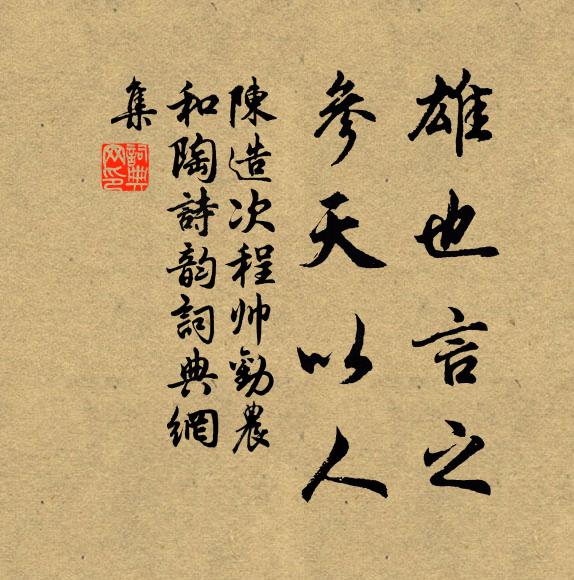 雄也言之
參天以人
陳造次程帅勸農
和陶詩韵詞典網
集
詞典
网印